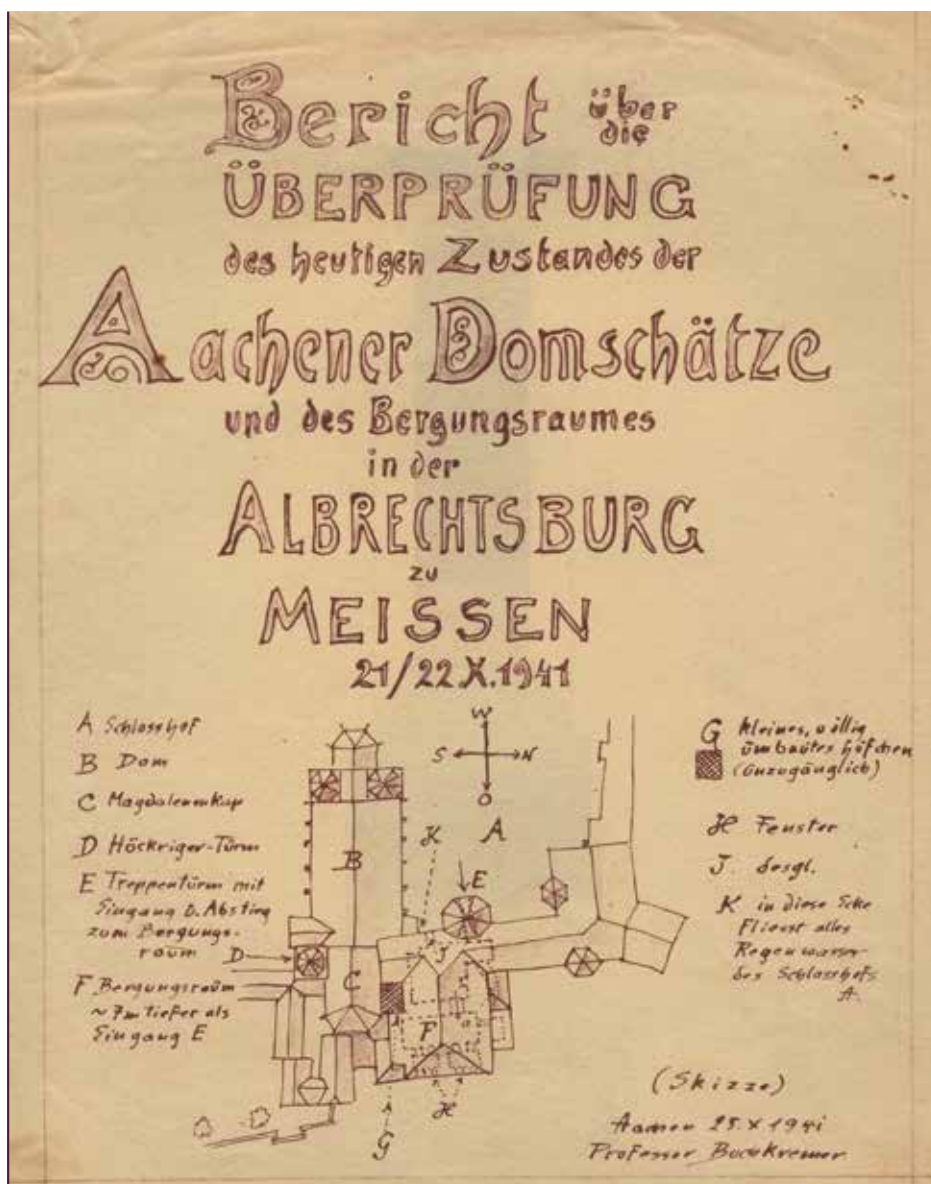 Bericht über
die
ÜBERPRÜFUNG
des heutigen Zustandes der
Aachener Domschätze
und des Bergungsraumes
in der
ALBRECHTSBURG
zu
MEISSEN
21/22 X. 1941
A Schlosshof
B Dom
C Magdalenenkap
D Höckriger-Turm
E Treppentürm mit
Eingang b. Abstieg
zum Bergungs-
raum
F Bergungsraüm
~ 7m tiefer als
Eingang E
W
S N
O
A
K
B
E
J
D
C
F
H
G
G Kleines, völlig
ümbautes höfchen
(Unzugänglich)
H Fenster
J. desgl.
K in diese Ecke
Fliesst alles
Regenwasser
des Schlosshofs
A.
(Skizze)
25. X 1941
Professor Buchkremer